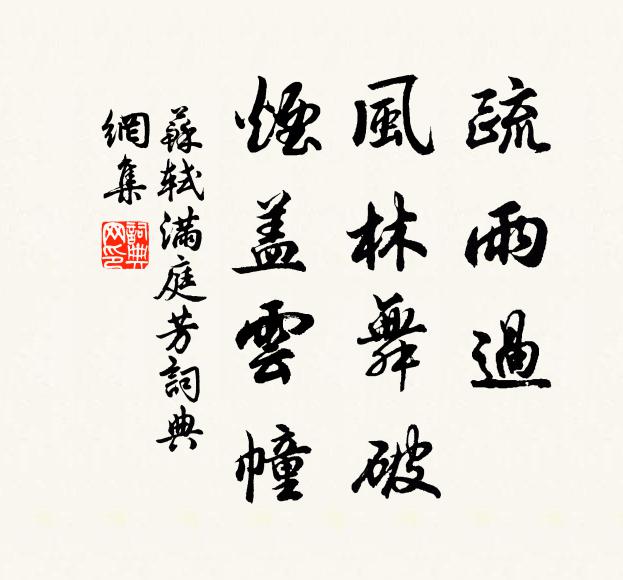 疏雨過
風林舞破
煙蓋雲幢
蘇軾滿庭芳詞典
網集
詞典网印